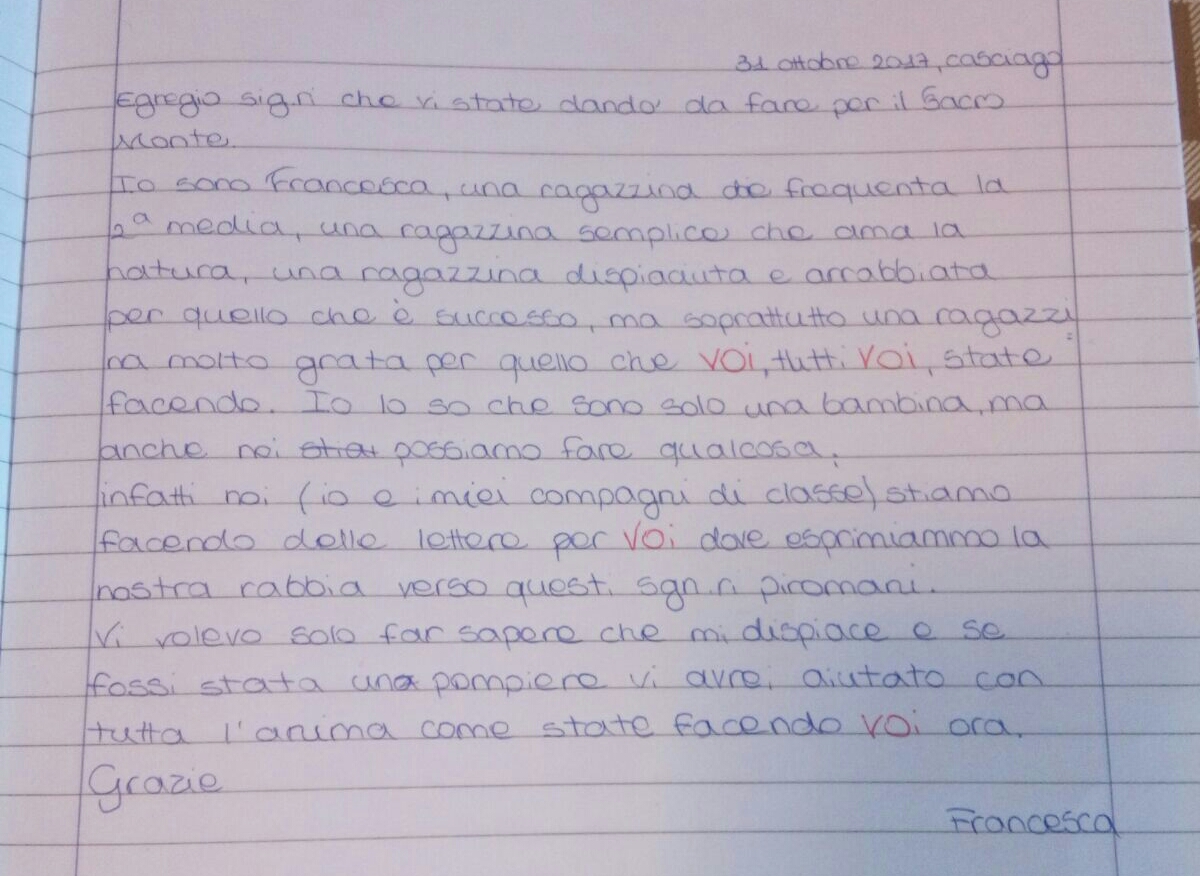 31 ottobre 2017, Casciago
Egregio sig.ri che vi state dando da fare per il Sacro
Monte.
Io sono Francesca, una ragazzina che frequenta la
2ª media, una ragazzina semplice che ama la
natura, una ragazzina dispiaciuta e arrabbiata
per quello che è successo, ma soprattutto una ragazzi
na molto grata per quello che VOi, tutti VOi, state
facendo. Io lo so che sono solo una bambina, ma
anche noi possiamo fare qualcosa;
infatti noi (io e i miei compagni di classe) stiamo
facendo delle lettere per VOi dove esprimiammo la
nostra rabbia verso questi sgn.ri piromani.
Vi volevo solo far sapere che mi dispiace e se
fossi stata una pompiere vi avrei aiutato con
tutta l'anima come state facendo VOi ora.
Grazie
Francesca